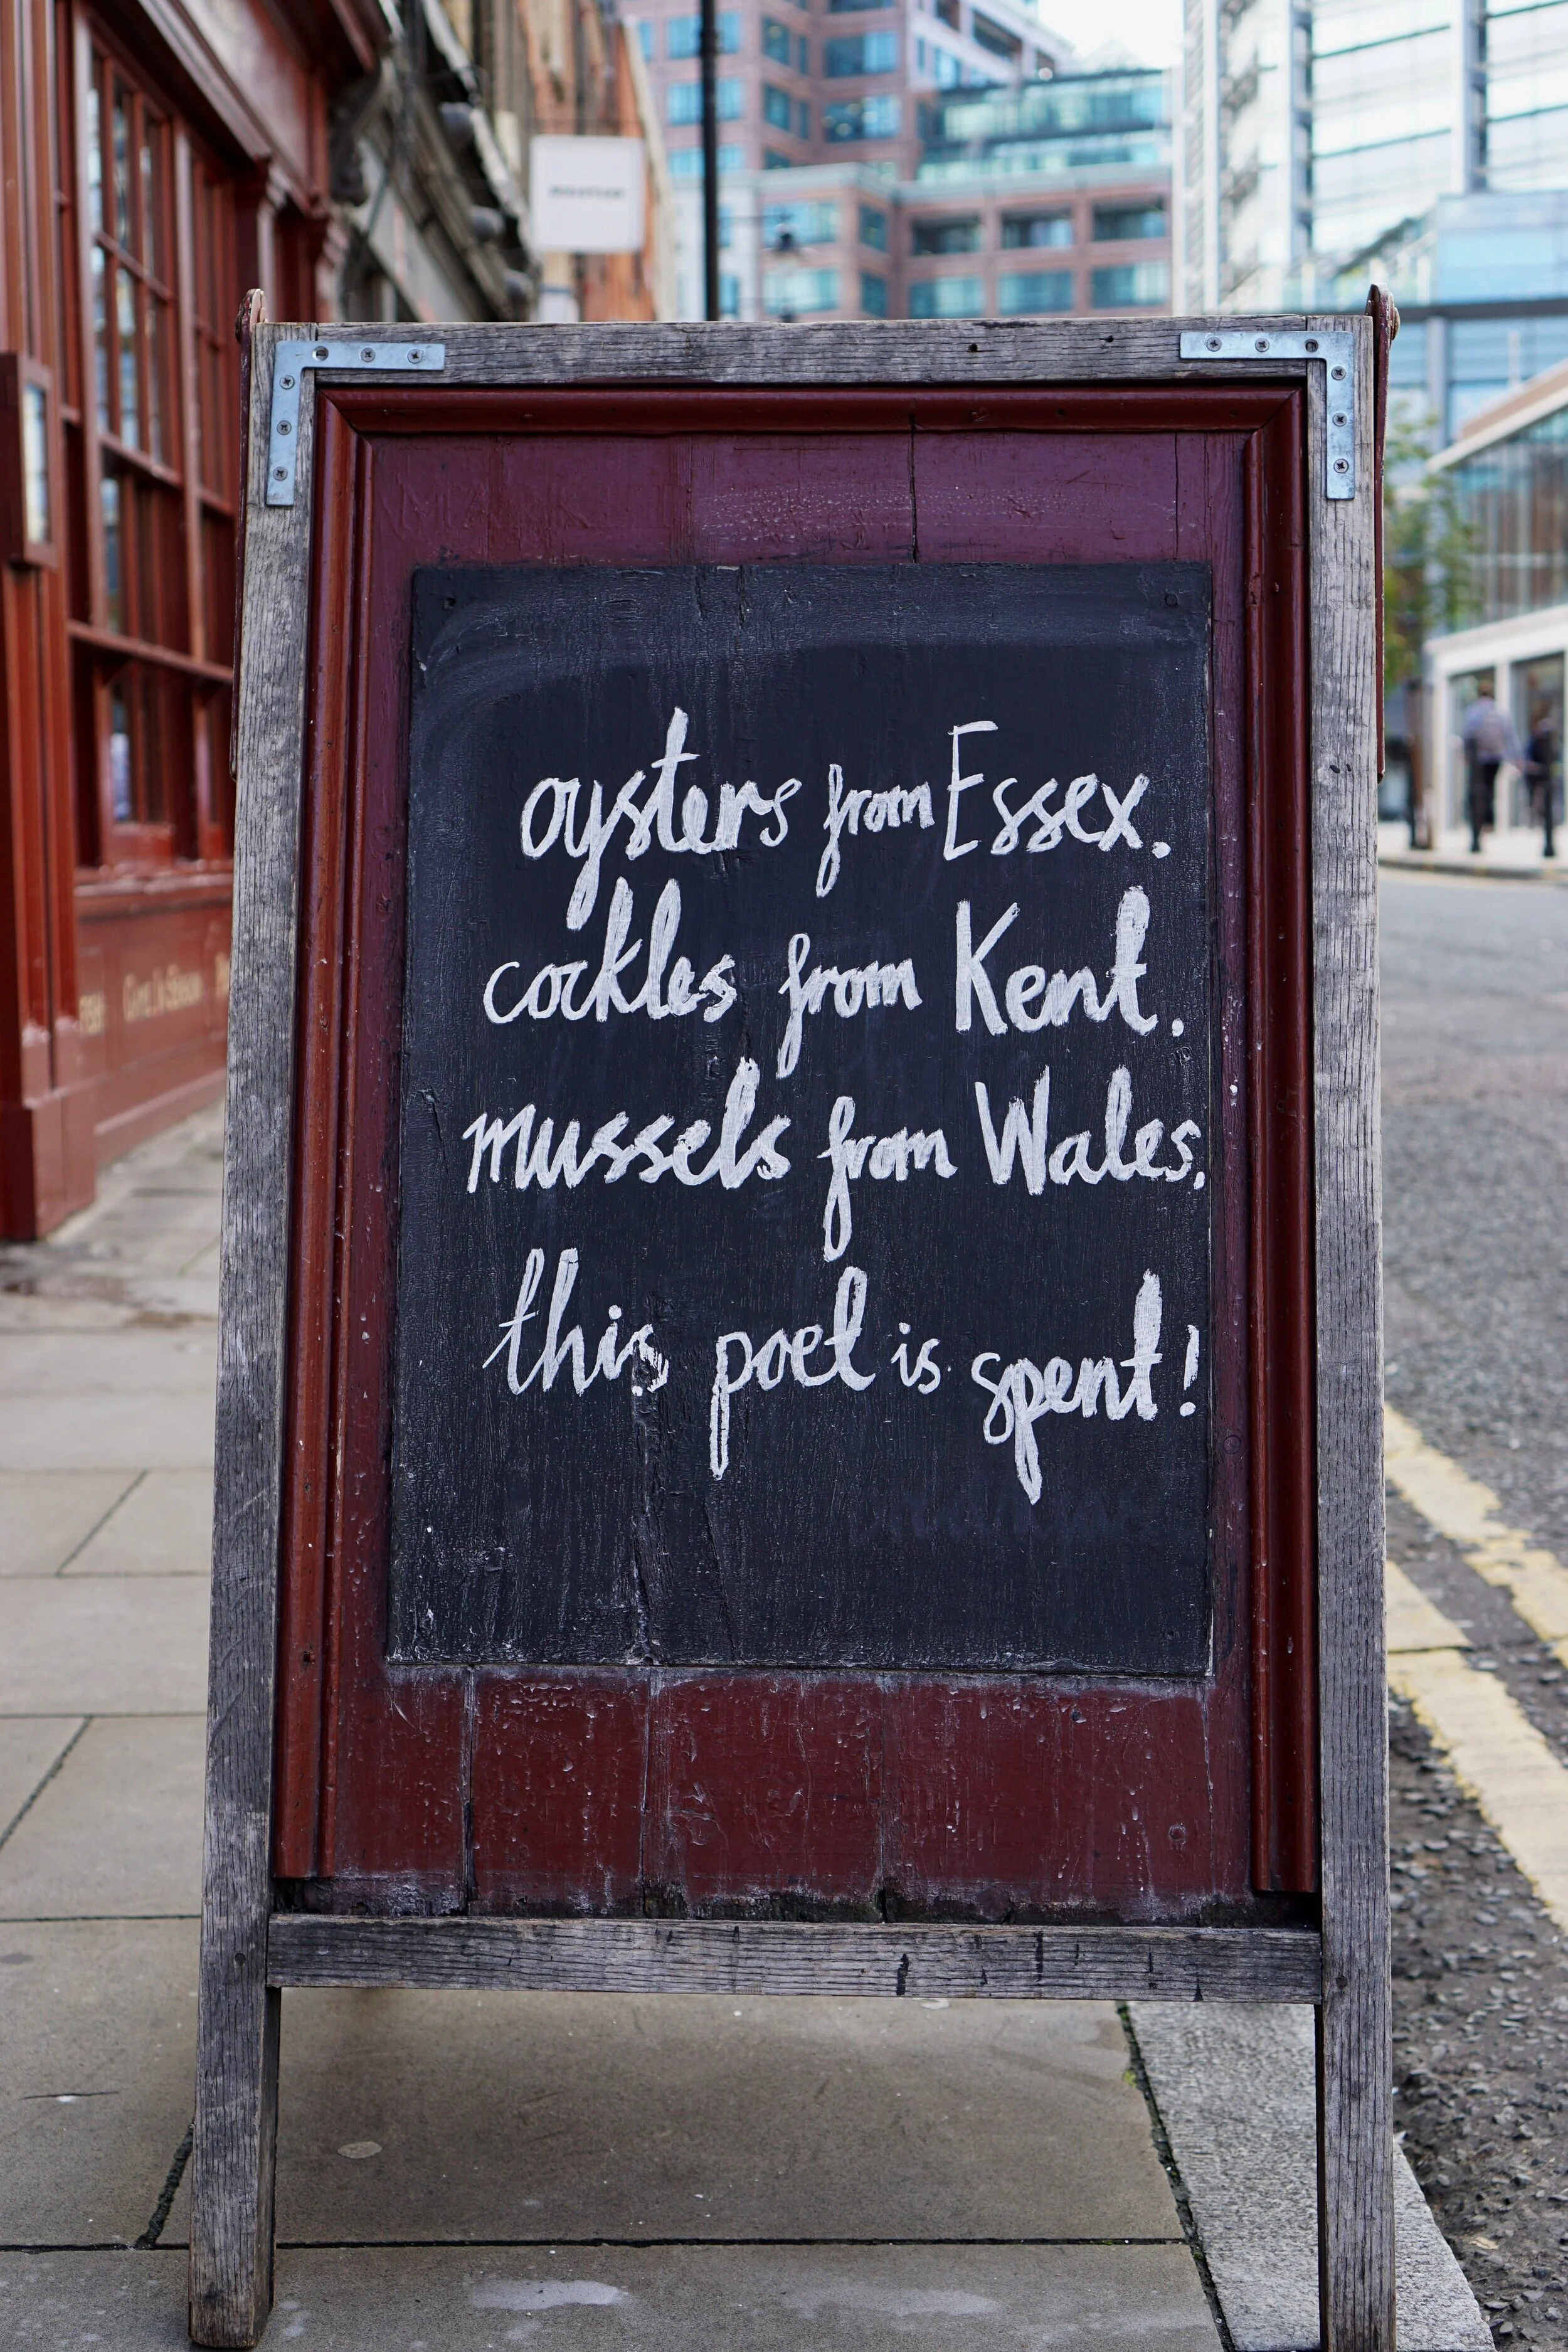 oysters from Essex.
cockles from Kent.
mussels from Wales.
this poet is spent!